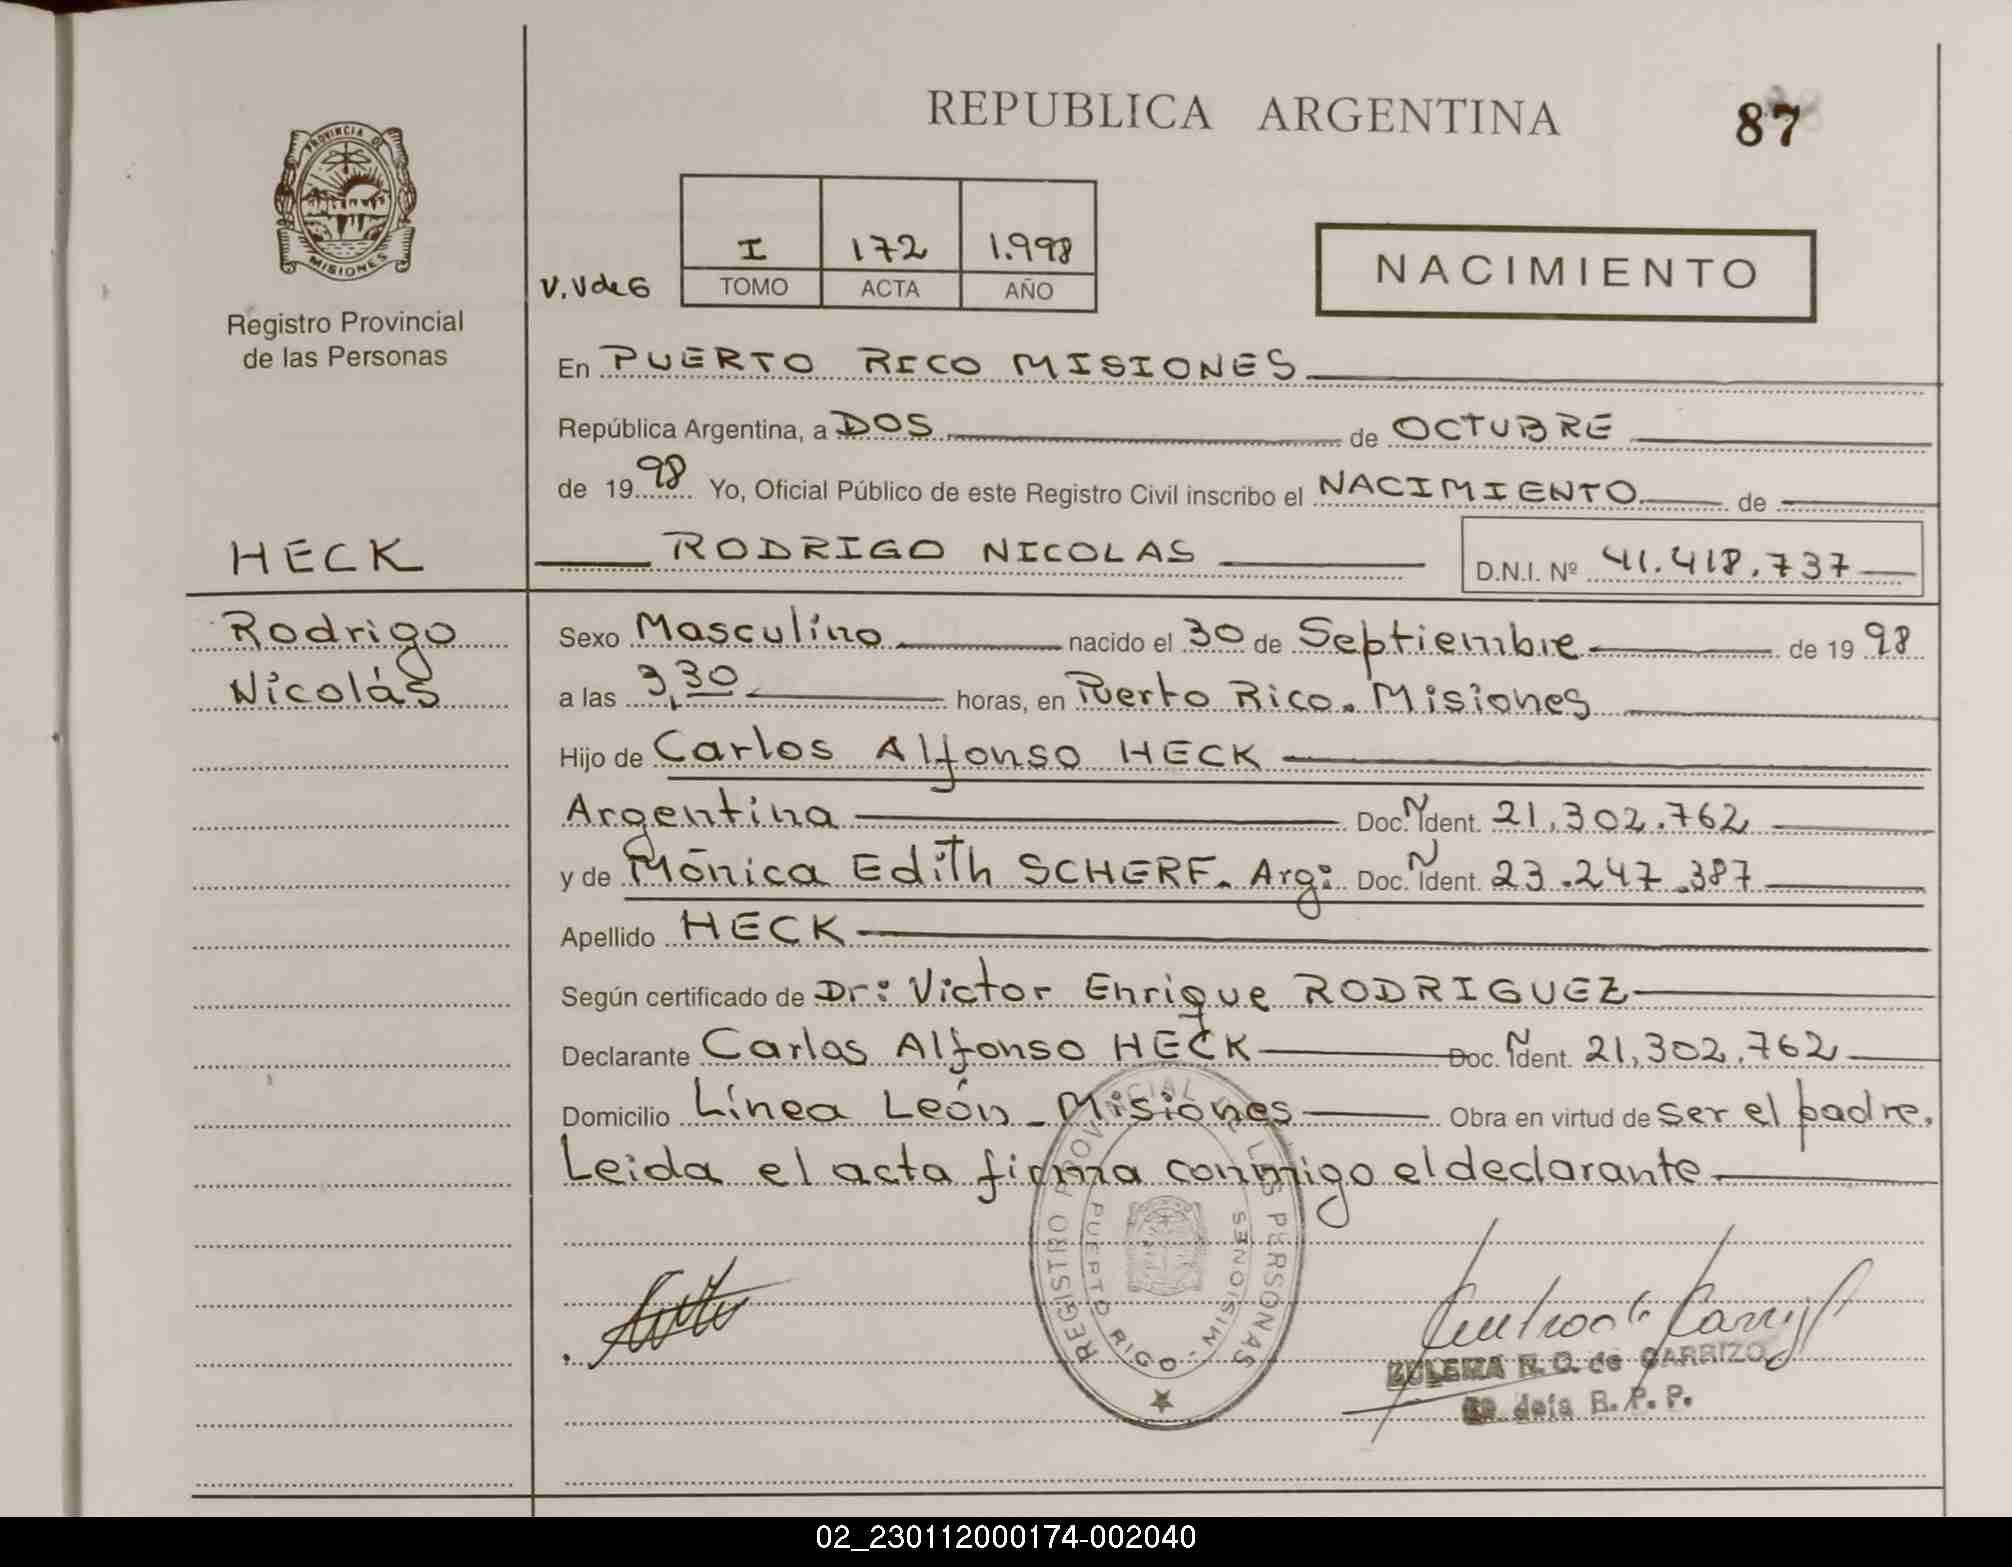 REPUBLICA ARGENTINA
87
PROVINCIA DE
MISIONES
Registro Provincial
de las Personas
V.V de G
I 172 1.998
TOMO ACTA AÑO
NACIMIENTO
En PUERTO RICO MISIONES
República Argentina, a DOS de OCTUBRE
de 1998 Yo, Oficial Público de este Registro Civil inscribo el NACIMIENTO de
HECK
RODRIGO NICOLAS D.N.I. Nº 41.418.737
Rodrigo
Nicolás
Sexo Masculino nacido el 30 de Septiembre de 1998
a las 3,30 horas, en Puerto Rico. Misiones
Hijo de Carlos Alfonso HECK
Argentina Doc. Ident. 21.302.762
y de Mónica Edith SCHERF. Arg: Doc. Ident. 23.247.387
Apellido HECK
Según certificado de Dr: Victor Enrique RODRIGUEZ
Declarante Carlos Alfonso HECK Doc. Ident. 21.302.762
Domicilio Línea León - Misiones Obra en virtud de ser el padre.
Leida el acta firma conmigo el declarante
REGISTRO PROVINCIAL DE LAS PERSONAS
PUERTO RICO - MISIONES
ZULEMA R. O. de CARRIZO
R. P. P.
02_230112000174-002040